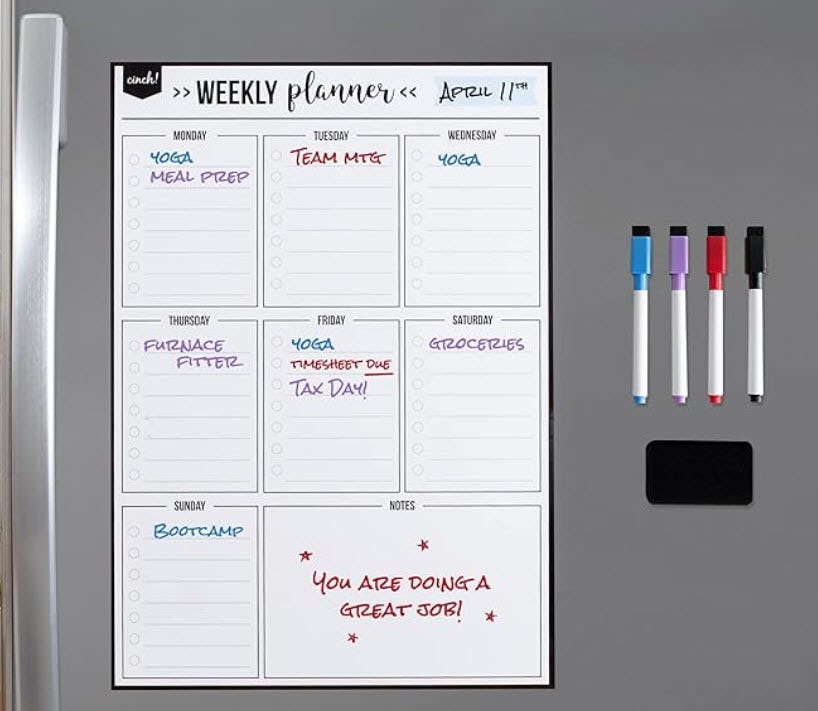 cinch!
>> WEEKLY planner <<
APRIL 11TH
MONDAY
YOGA
MEAL PREP
TUESDAY
TEAM MTG
WEDNESDAY
YOGA
THURSDAY
FURNACE
FITTER
FRIDAY
YOGA
TIMESHEET DUE
TAX DAY!
SATURDAY
GROCERIES
SUNDAY
BOOTCAMP
NOTES
YOU ARE DOING A
GREAT JOB!